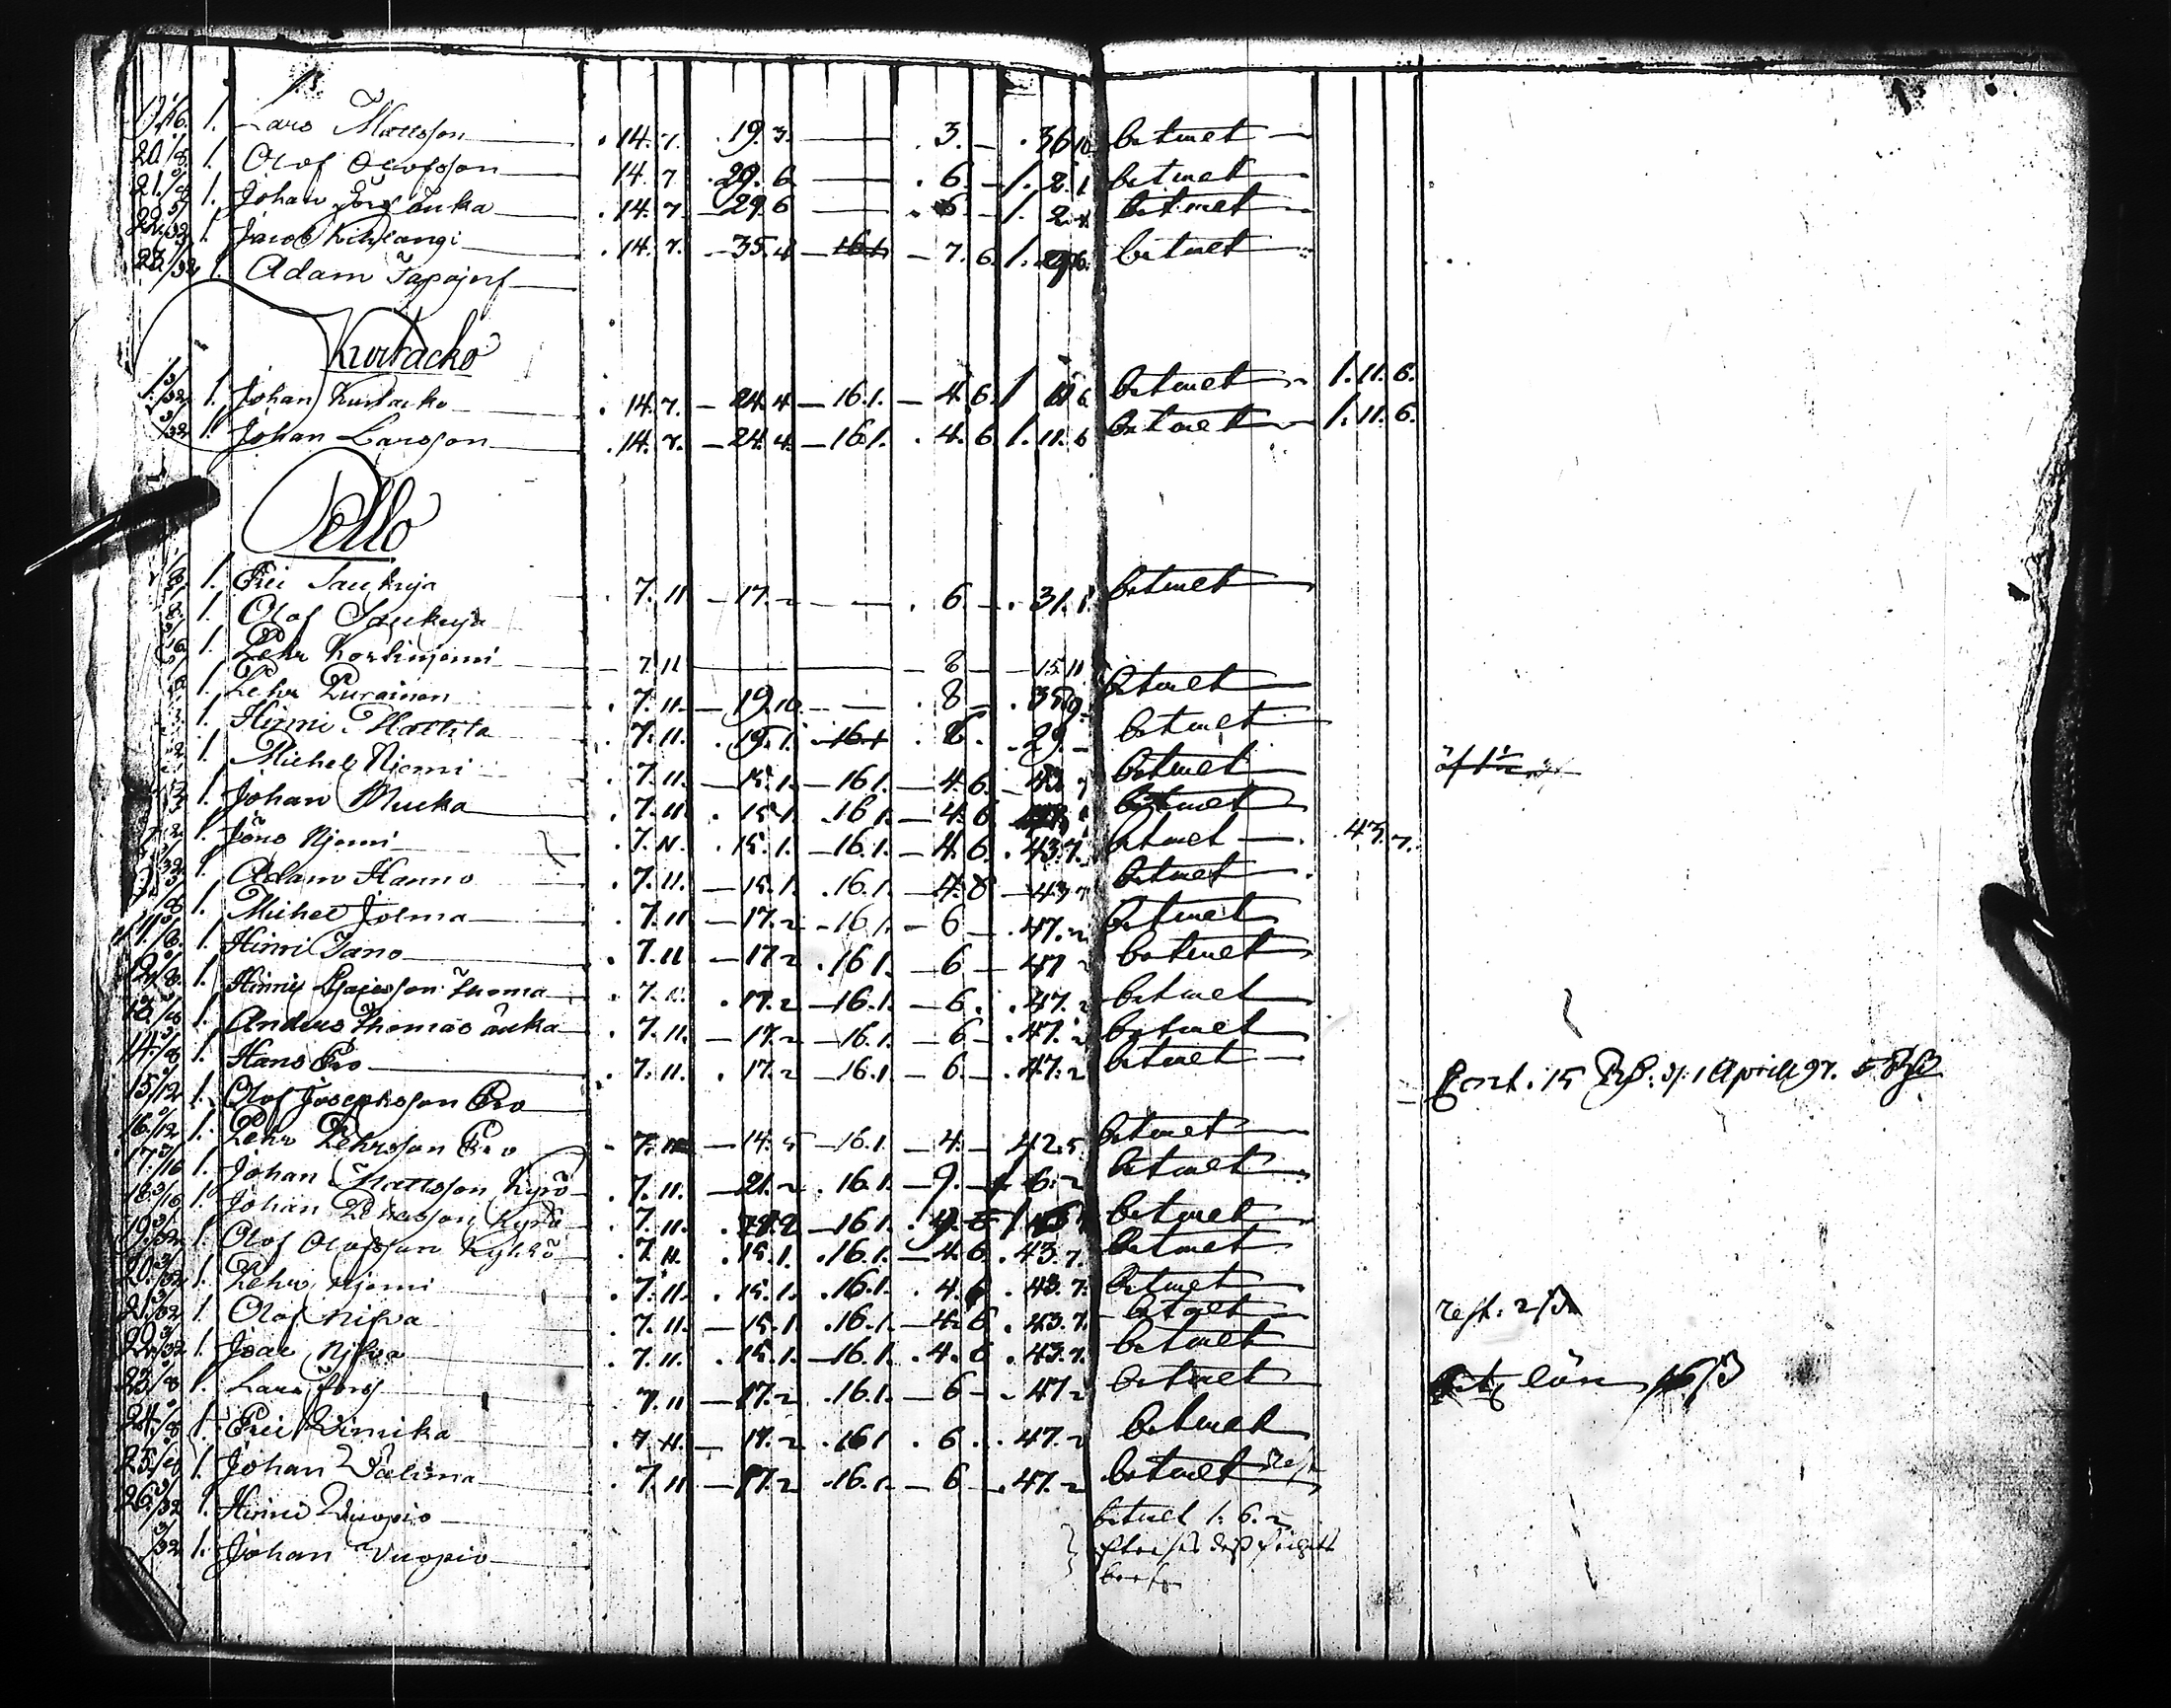 13.
19. /16. 1. Lars Mattsson . 14. 7. . 19. 3. — . 3. — . 36 10 betalt
20. /8. 1. Olof Olofsson 14. 7 . 29. 6 — . 6. — 1. 2. 1 betalt
21. /8 1. Johan Jörs änka . 14. 7. — 29. 6 — . 6 — 1. 2. 1 betalt
22. 3/32 1. Jacob Kihlangi . 14. 7. — 35. 4 — 7. 6. 1. betalt
23. 3/32 1. Adam Tapojerf
Kurtacko
1. 3/32 1. Johan Kurtacko . 14. 7. — 24. 4 — 16. 1. — 4. 6. 1 11 6 betalt — 1. 11. 6.
3/32 1. Johan Larsson . 14. 7. — 24. 4. — 16 1. . 4. 6. 1. 11. 6 betalt — 1. 11. 6.
Pello
/8. 1. Eric Saukuja . 7. 11 — 17. 2 — . 6. — . 31. 1 betalt
/8. 1. Olof Saukuja
/16 1. Pehr Kortinjemi 7. 11 — 8 — 15 11
/8 1. Pehr Puranen . 7. 11. — 19. 10. — . 8 — . 35 9 betalt
1. Henric Mattila . 7. 11. . 15. 1. . 6. . 29 — betalt
1. Michel Niemi . 7. 11. — 15. 1. — 16 1. — 4. 6. — 43 7 betalt
1. Johan Mucka . 7. 11. . 15 1. . 16 1. — 4. 6 betalt
1. Jöns Njemi . 7. 11. . 15. 1. — 16. 1. — 4. 6. . 43. 7. betalt — . 43. 7.
/32 1. Adam Hanno . 7. 11. — 15. 1. . 16. 1. — 4. 6 — 43 7 betalt
/8. 1. Michel Jolma . 7. 11 — 17. 2 — 16 1. — 6 — . 47. 2 betalt
11. /8. 1. Hinric Tano . 7. 11 — 17 2 . 16 1. — 6 — 47 2 betalt
12. /8. 1. Hinric Thoma . 7. 11. . 17. 2 — 16. 1. — 6. . 47. 2 betalt
13. /8 1. Anders Thomas änka . 7. 11. — 17. 2 — 16. 1. — 6 — . 47. 2 betalt
14. /8 1. Hans Ero . 7. 11. . 17. 2 — 16. 1 — 6. — . 47. 2 betalt
15. /12 1. Olof Josephsson Ero 15 1 Aprill 97.
16. /12 1. Pehr Pehrsson Ero . 7. 11 — 14. 5 — 16. 1. — 4. — 42. 5. betalt
17. /16 1. Johan Mattsson Kyrö . 7. 11. — 21. 2 . 16. 1. — 9. — 1 6. 2 betalt
18. 3/16 1. Johan Pehrsson Kyrö . 7. 11. — 16 1. betalt
19. 3/32 1. Olof Olofsson Kyhrö . 7. 11. . 15. 1. . 16. 1. — 4. 6. . 43. 7. betalt
20. 3/32 1. Pehr Njemi . 7. 11. . 15. 1. . 16. 1. . 4. 6 . 43. 7. betalt
21. 3/32 1. Olof Niska . 7. 11. — 15. 1. . 16. 1. — 4. 6 . 43. 7. betalt rest: 2
22. 3/32 1. Isac Njska . 7. 11. . 15. 1. — 16. 1. . 4. 6 . 43. 7. betalt
23. /8 1. Lars Jörs . 7. 11 — 17. 2 . 16. 1. — 6 — . 47. 2 betalt lön
24. /8 1. Eric Vinicka . 7 11. — 17. 2 . 16 1 . 6 . . . 47. 2 betalt
25. /4 1. Johan Valima . 7. 11 — 17. 2 . 16. 1. — 6 — . 47. 2 betalt Rest
26. 3/32 1. Hinric Vuopio betalt 1. 6. 2
3/32 1. Johan Vuopio